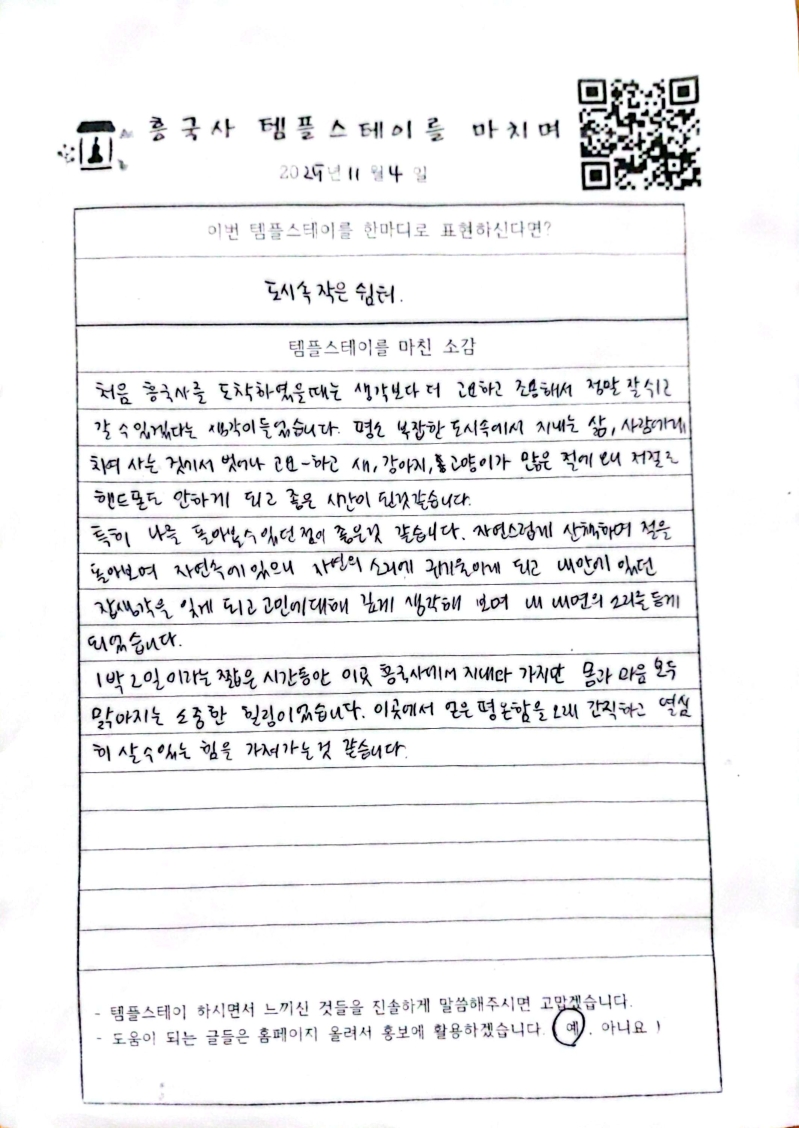 흥국사 템플스테이를 마치며
2025년 11월 4일
이번 템플스테이를 한마디로 표현하신다면?
도시속 작은 쉼터.
템플스테이를 마친 소감
처음 흥국사를 도착하였을때는 생각보다 더 고요하고 조용해서 정말 잘 쉬고
갈 수 있겠다는 생각이 들었습니다. 평소 복잡한 도시속에서 지내는 삶, 사람에게
치여 사는 것에서 벗어나 고요~하고 새, 강아지, 고양이가 많은 절에 오니 저절로
핸드폰도 안하게 되고 좋은 시간이 된것같습니다.
특히 나를 돌아볼수 있던 점이 좋은것 같습니다. 자연스럽게 산책하며 절을
돌아보며 자연속에 있으니 자연의 소리에 귀기울이게 되고 내안에 있던
잡생각을 잊게 되고 고민에대해 깊게 생각해 보며 내 내면의 소리를 듣게
되었습니다.
1박 2일이라는 짧은 시간동안 이곳 흥국사에서 지내다 가지만 몸과 마음 모두
맑아지는 소중한 힐링이었습니다. 이곳에서 얻은 평온함을 오래 간직하고 열심
히 살 수 있는 힘을 가져가는것 같습니다.
- 템플스테이 하시면서 느끼신 것들을 진솔하게 말씀해주시면 고맙겠습니다.
- 도움이 되는 글들은 홈페이지 올려서 홍보에 활용하겠습니다. (예, 아니요)